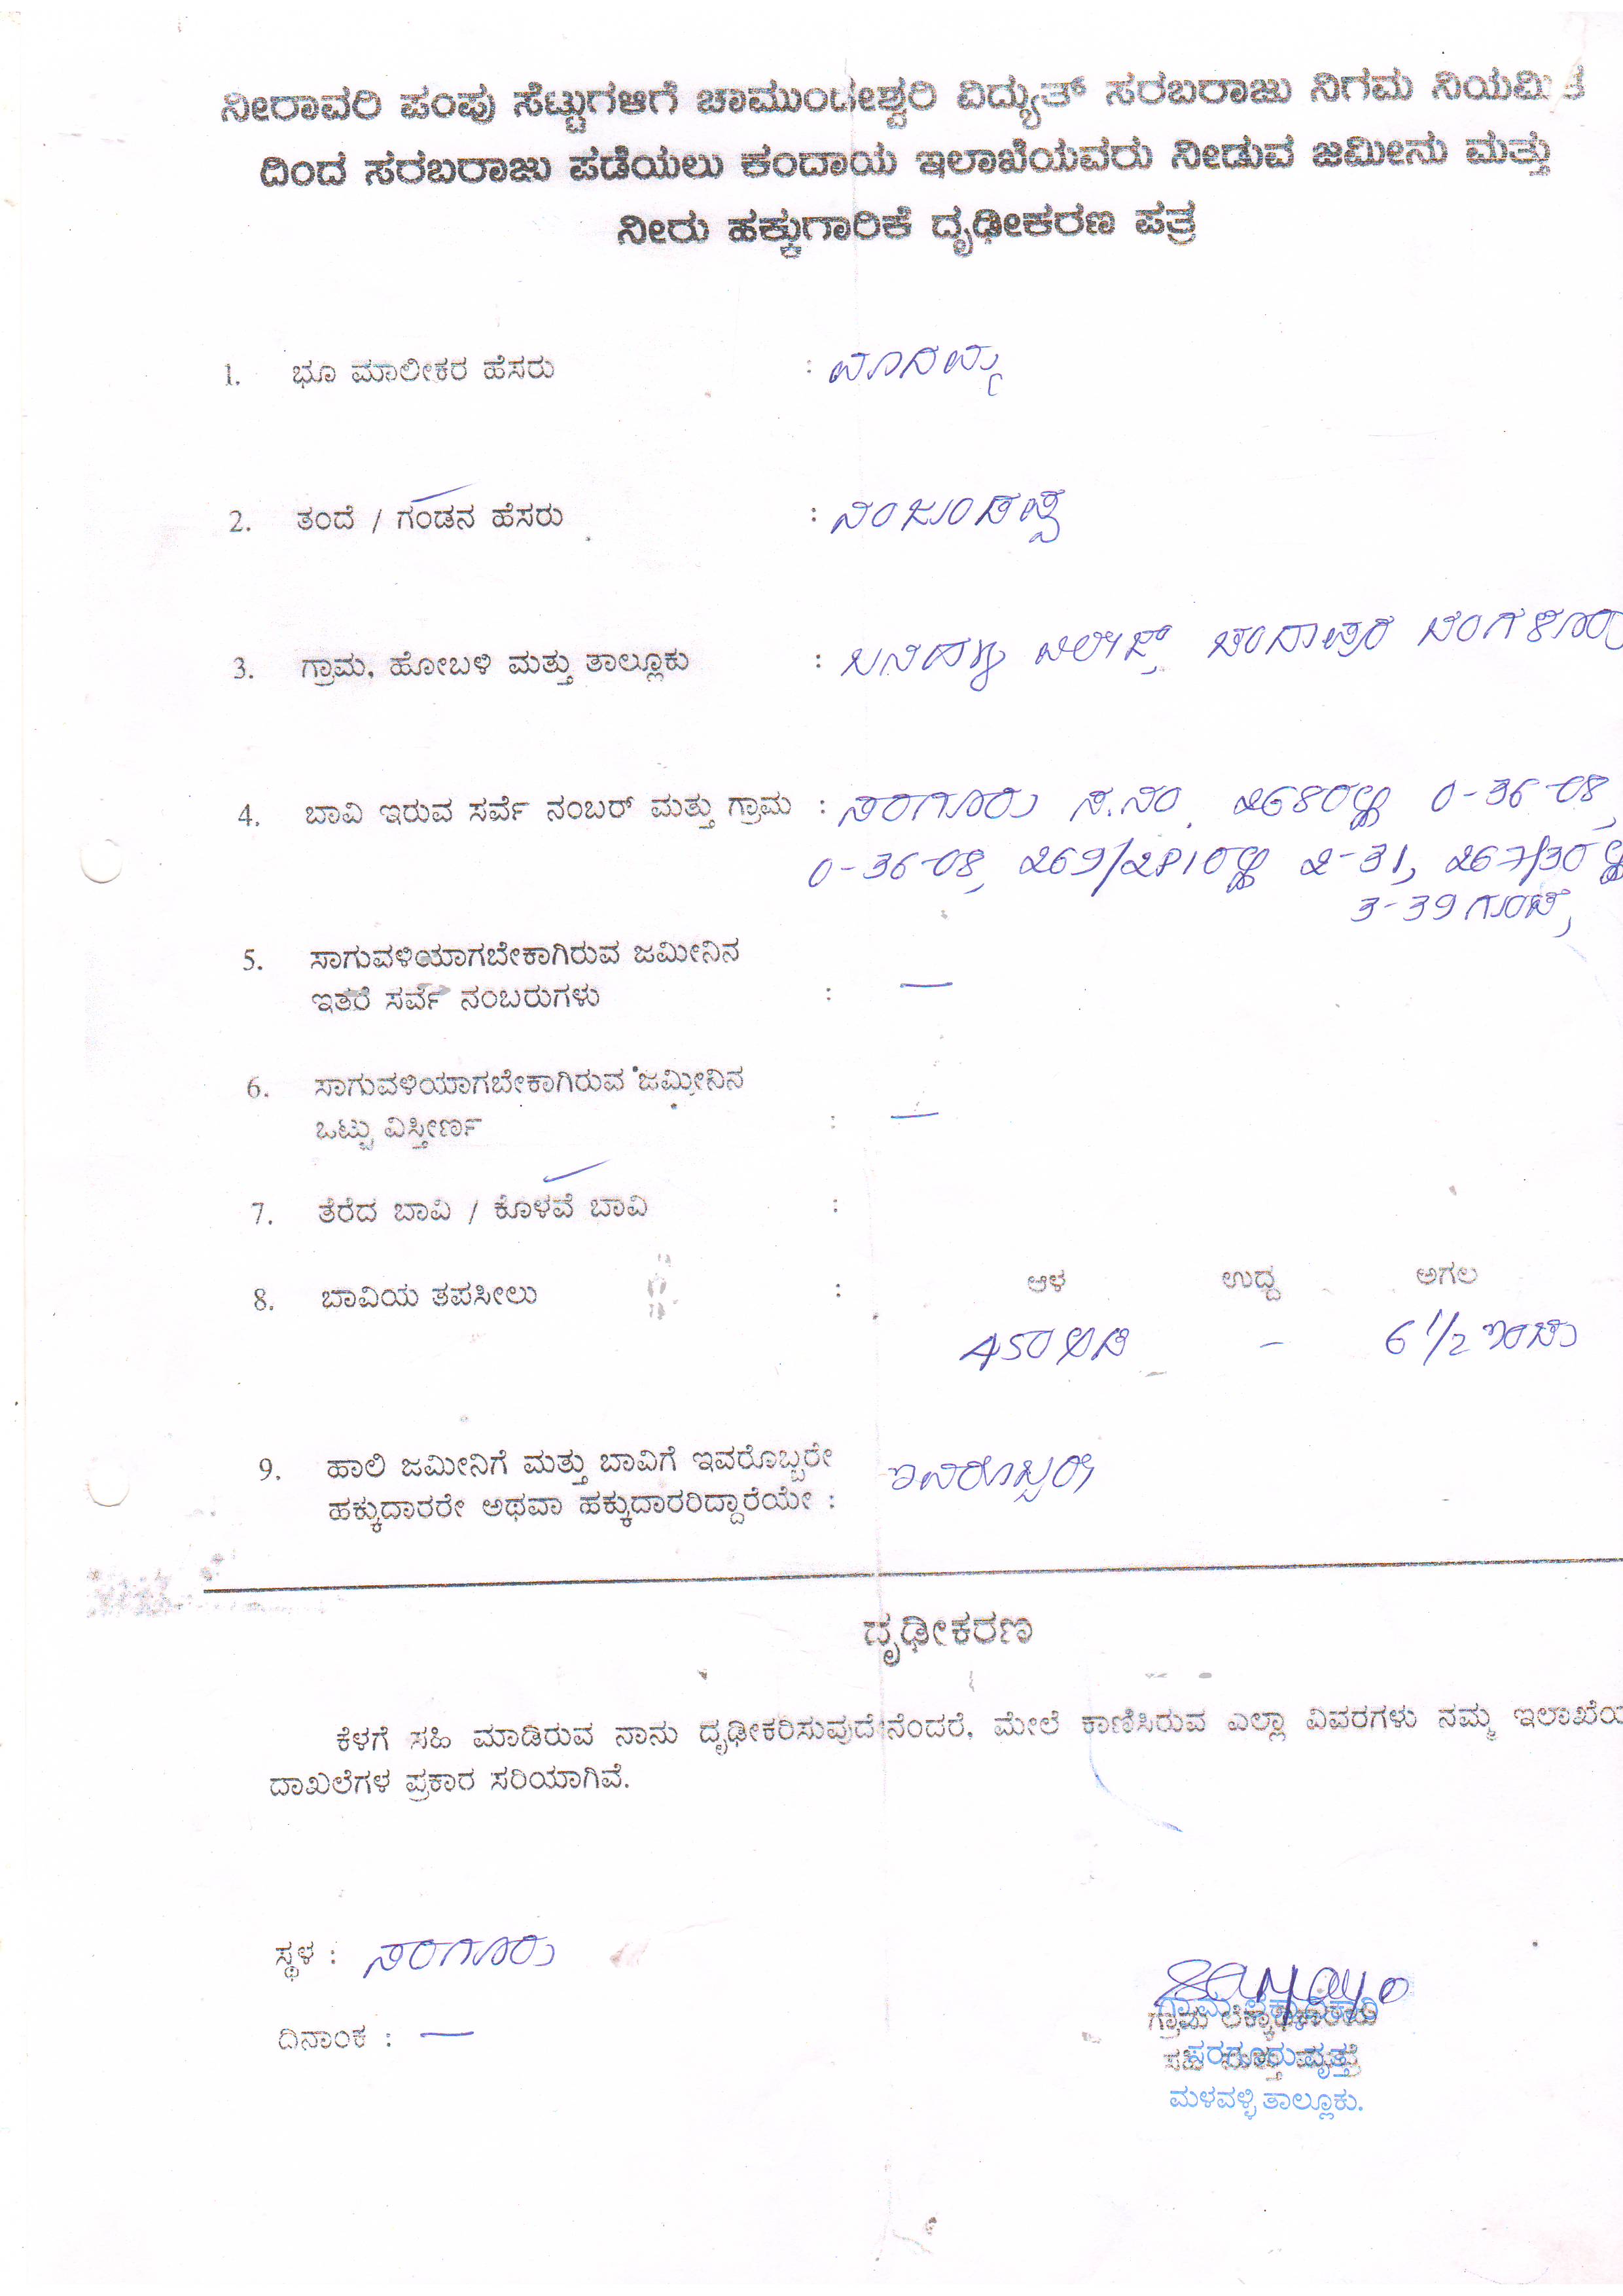 ನೀರಾವರಿ ಪಂಪು ಸೆಟ್ಟುಗಳಿಗೆ ಚಾಮುಂಡೇಶ್ವರಿ ವಿದ್ಯುತ್ ಸರಬರಾಜು ನಿಗಮ ನಿಯಮಿತ
ದಿಂದ ಸರಬರಾಜು ಪಡೆಯಲು ಕಂದಾಯ ಇಲಾಖೆಯವರು ನೀಡುವ ಜಮೀನು ಮತ್ತು
ನೀರು ಹಕ್ಕುಗಾರಿಕೆ ದೃಢೀಕರಣ ಪತ್ರ
1. ಭೂ ಮಾಲೀಕರ ಹೆಸರು :
2. ತಂದೆ / ಗಂಡನ ಹೆಸರು : ನಂಜುಂಡಪ್ಪ
3. ಗ್ರಾಮ, ಹೋಬಳಿ ಮತ್ತು ತಾಲ್ಲೂಕು : ಚಂದಾಪುರ ಬೆಂಗಳೂರು
4. ಬಾವಿ ಇರುವ ಸರ್ವೆ ನಂಬರ್ ಮತ್ತು ಗ್ರಾಮ : ಸರಗೂರು ಸ.ನಂ. 268ರಲ್ಲಿ 0-36-08,
0-36-08, 269/2P1ರಲ್ಲಿ 2-31, 267/3ರಲ್ಲಿ
3-39 ಗುಂಟೆ,
5. ಸಾಗುವಳಿಯಾಗಬೇಕಾಗಿರುವ ಜಮೀನಿನ
ಇತರೆ ಸರ್ವೆ ನಂಬರುಗಳು : —
6. ಸಾಗುವಳಿಯಾಗಬೇಕಾಗಿರುವ ಜಮೀನಿನ
ಒಟ್ಟು ವಿಸ್ತೀರ್ಣ : —
7. ತೆರೆದ ಬಾವಿ / ಕೊಳವೆ ಬಾವಿ :
8. ಬಾವಿಯ ತಪಸೀಲು : ಆಳ ಉದ್ದ ಅಗಲ
450 ಅಡಿ - 6 1/2 ಇಂಚು
9. ಹಾಲಿ ಜಮೀನಿಗೆ ಮತ್ತು ಬಾವಿಗೆ ಇವರೊಬ್ಬರೇ ಇವರೊಬ್ಬರೇ
ಹಕ್ಕುದಾರರೇ ಅಥವಾ ಹಕ್ಕುದಾರರಿದ್ದಾರೆಯೇ :
ದೃಢೀಕರಣ
ಕೆಳಗೆ ಸಹಿ ಮಾಡಿರುವ ನಾನು ದೃಢೀಕರಿಸುವುದೇನೆಂದರೆ, ಮೇಲೆ ಕಾಣಿಸಿರುವ ಎಲ್ಲಾ ವಿವರಗಳು ನಮ್ಮ ಇಲಾಖೆಯ
ದಾಖಲೆಗಳ ಪ್ರಕಾರ ಸರಿಯಾಗಿವೆ.
ಸ್ಥಳ : ಸರಗೂರು
ದಿನಾಂಕ : —
ಗ್ರಾಮ ಲೆಕ್ಕಾಧಿಕಾರಿ
ಸರಗೂರು ವೃತ್ತ
ಮಳವಳ್ಳಿ ತಾಲ್ಲೂಕು.